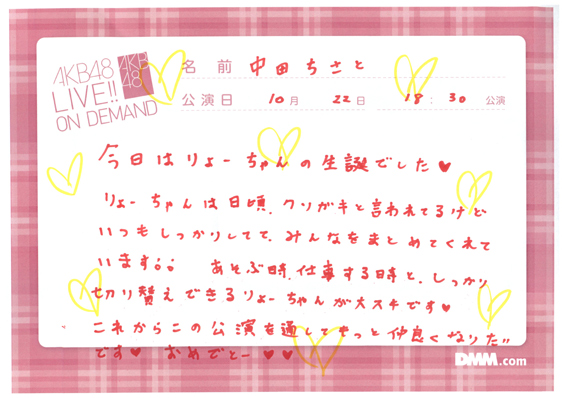 AKB48
LIVE!!
ON DEMAND
AKB
48
名前 中田ちさと
公演日 10月 22日 18:30 公演
今日はりょーちゃんの生誕でした♥
りょーちゃんは日頃、クソガキと言われてるけど
いつもしっかりしてて、みんなをまとめてくれて
います。。 あそぶ時、仕事する時と、しっかり
切り替えできるりょーちゃんが大スキです♥
これからこの公演を通してもっと仲良くなりたい
です♥ おめでとー♥♥
DMM.com